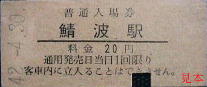 普通入場券
鯖波駅
料金20円
通用発売日当日1回限り
客車内に立入ることはできません。
42.-4.30
見本